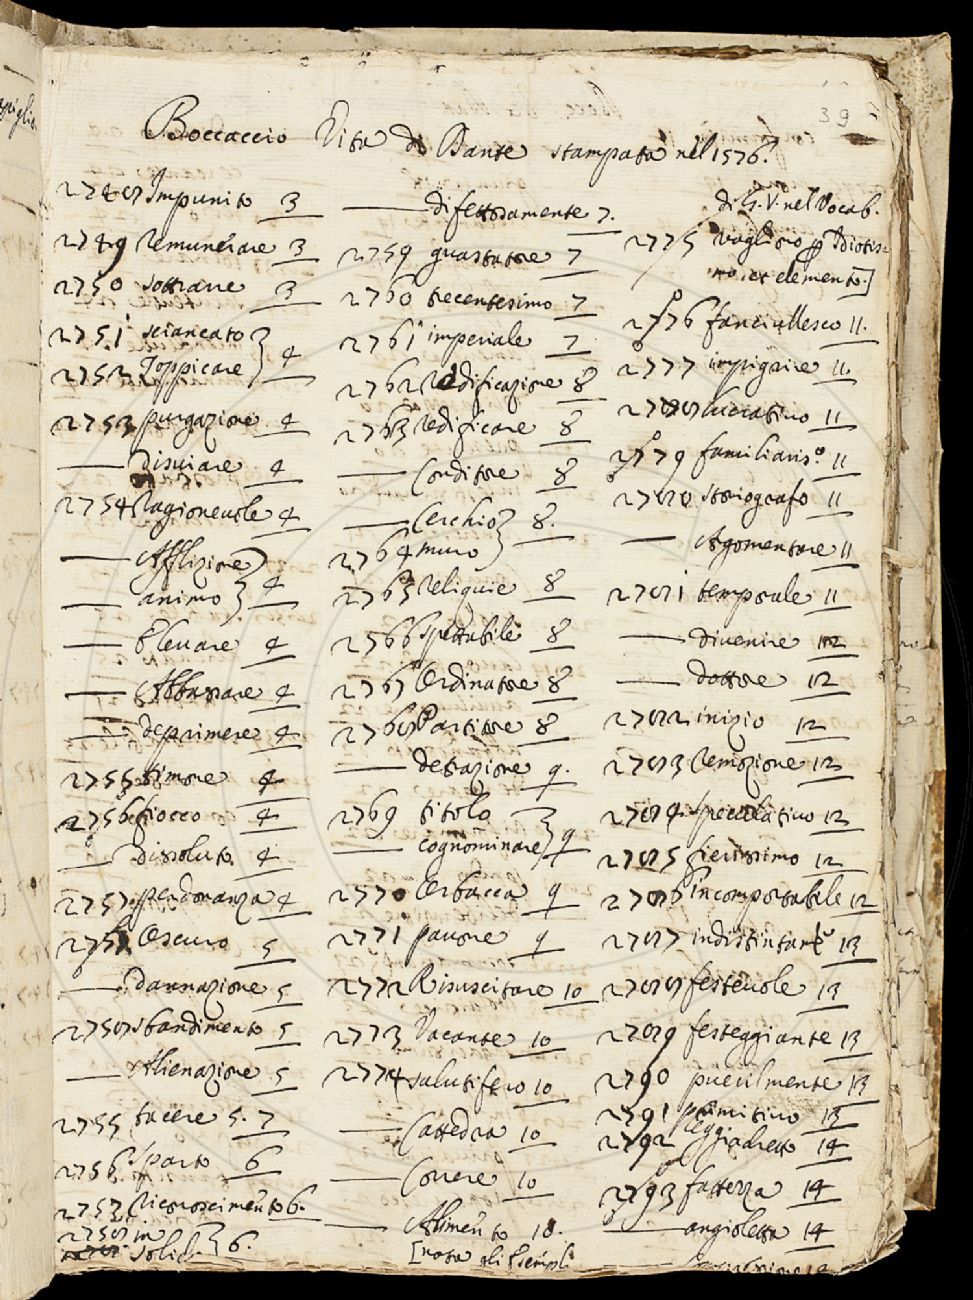 39
Boccaccio Vita di Dante stampata nel 1576.
2748 Impunito 3
2749 Remunerare 3
2750 sottrarre 3
2751 sciancato
2752 Zoppicare } 4
2753 purgazione 4
—— Disviare 4
2754 Ragionevole 4
—— Afflizione
—— animo } 4
—— Elevare 4
—— Abbassare 4
—— deprimere 4
2755 timore 4
2756 fiocco 4
—— Dissoluto 4
2757 perdonanza 4
275 Oscuro 5
—— Dannazione 5
2758 sbandimento 5
—— Alienazione 5
2755 tacere 5. 7
2756 Sparto 6
2757 Riconoscimento 6.
2758 in
solido } 6.
—— difettosamente 7.
2759 guastatore 7
2760 trecentesimo 7
2761 imperiale 7
2762 Redificazione 8
2763 Redificare 8
—— Conditore 8
—— Cerchio
2764 muro } 8.
2765 Reliquie 8
2766 Spettabile 8
2767 Ordinatore 8
2768 Partitore 8
—— detrazione 9.
2769 titolo
—— cognominare } 9
2770 Orbacca 9
2771 pavone 9
2772 Risuscitare 10
2773 Vacante 10
2774 salutifero 10
—— Cattedra 10
—— Correre 10
—— Alimento 10.
[nota gli Esempli
di G. V. nel Vocab.
2775 vogliono p Idiotis-
mo. et elemento.]
2776 fanciullesco 11.
2777 impigrire 11
2778 lucrativo 11
2779 familiariss.o 11
2780 storiografo 11
—— Argomentare 11
2781 temporale 11
—— divenire 12
—— dottore 12
2782 inizio 12
2783 Remozione 12
2784 speculativo 12
2785 fierissimo 12
2786 incomportabile 12
2787 indistintam.te 13
2788 festevole 13
2789 festeggiante 13
2790 puerilmente 13
2791 primitivo 13
2792 leggiadretto 14
2793 fattezza 14
—— angioletta 14